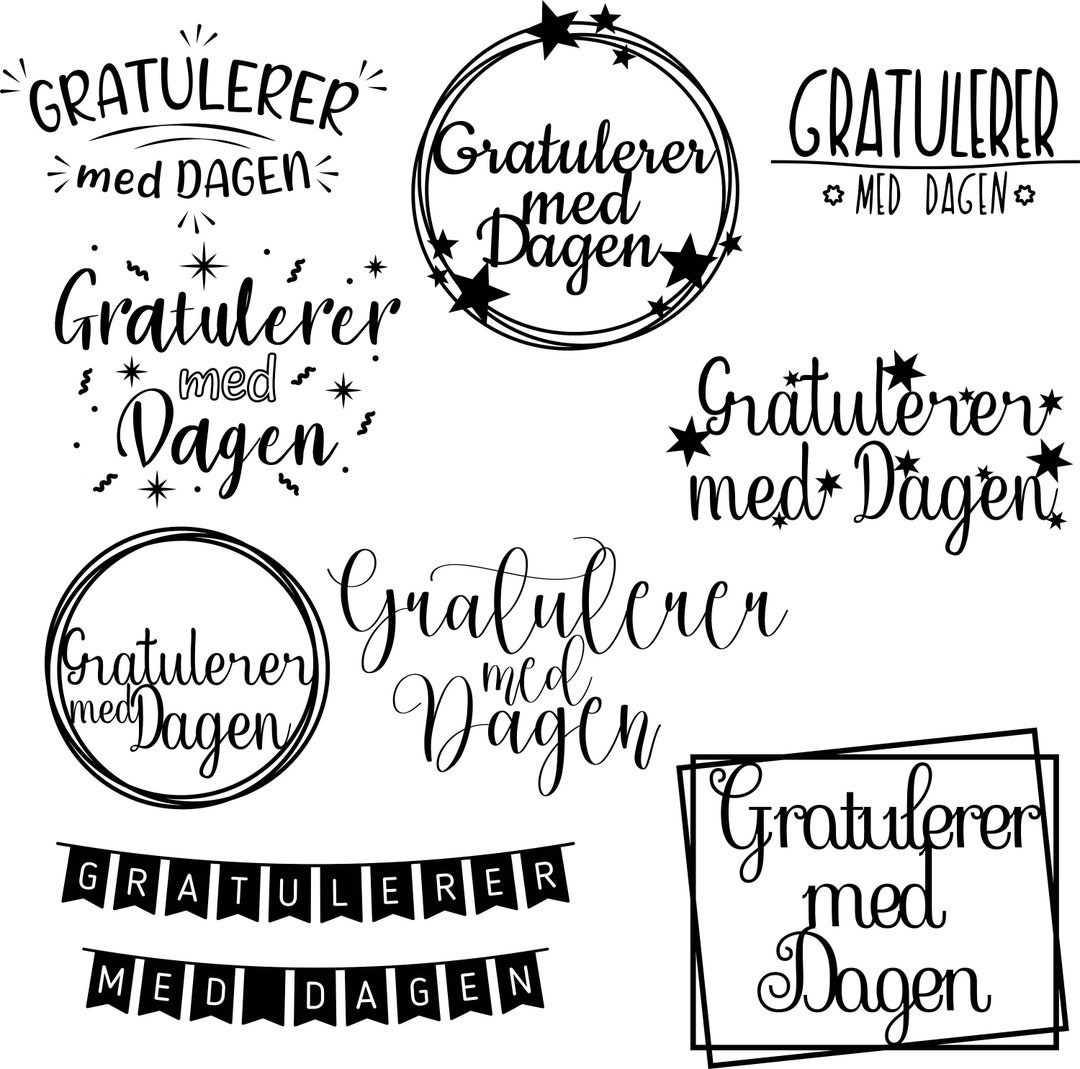 GRATULERER
med DAGEN
Gratulerer
med
Dagen
GRATULERER
MED DAGEN
Gratulerer
med
Dagen
Gratulerer
med Dagen
Gratulerer
med Dagen
Gratulerer
med
Dagen
GRATULERER
MED DAGEN
Gratulerer
med
Dagen